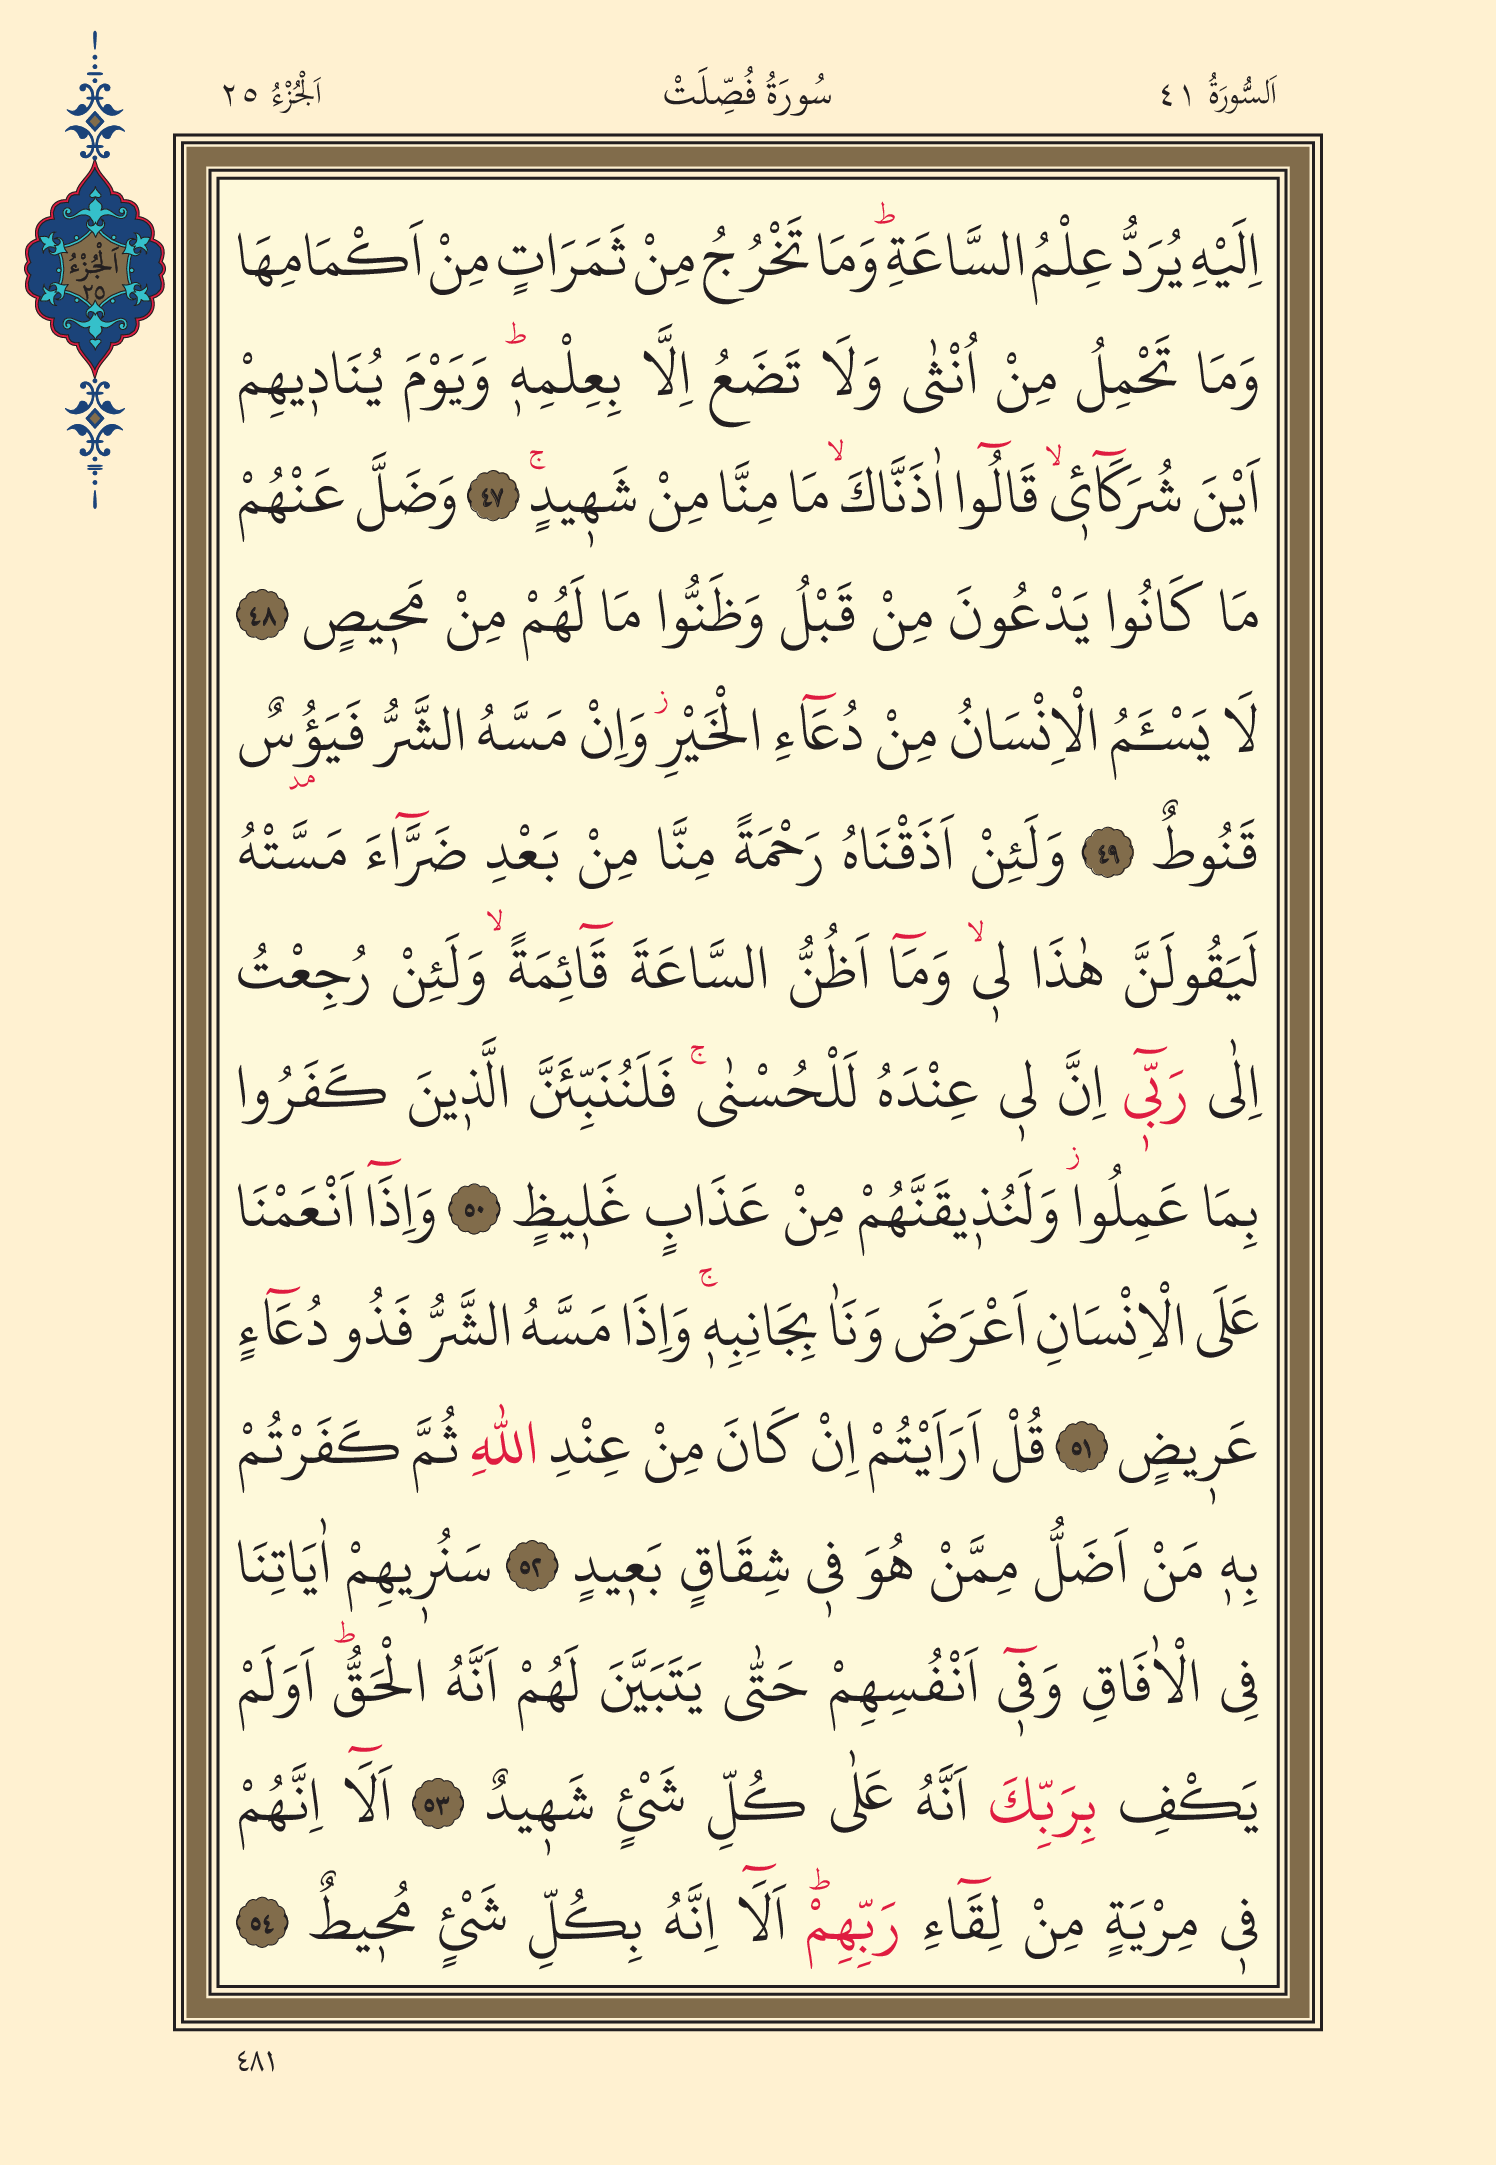 اَلسُّورَةُ ٤١ سُورَةُ فُصِّلَتْ اَلْجُزْءُ ٢٥
اَلْجُزْءُ
٢٥
اِلَيْهِ يُرَدُّ عِلْمُ السَّاعَةِۜ وَمَا تَخْرُجُ مِنْ ثَمَرَاتٍ مِنْ اَكْمَامِهَا
وَمَا تَحْمِلُ مِنْ اُنْثٰى وَلَا تَضَعُ اِلَّا بِعِلْمِه۪ۜ وَيَوْمَ يُنَاد۪يهِمْ
اَيْنَ شُرَكَٓاء۪ٔيۙ قَالُٓوا اٰذَنَّاكَۙ مَا مِنَّا مِنْ شَه۪يدٍۚ ﴿٤٧﴾ وَضَلَّ عَنْهُمْ
مَا كَانُوا يَدْعُونَ مِنْ قَبْلُ وَظَنُّوا مَا لَهُمْ مِنْ مَح۪يصٍ ﴿٤٨﴾
لَا يَسْـَٔمُ الْاِنْسَانُ مِنْ دُعَٓاءِ الْخَيْرِۘ وَاِنْ مَسَّهُ الشَّرُّ فَيَؤُ۫سٌ
قَنُوطٌ ﴿٤٩﴾ وَلَئِنْ اَذَقْنَاهُ رَحْمَةً مِنَّا مِنْ بَعْدِ ضَرَّٓاءَ مَسَّتْهُ
لَيَقُولَنَّ هٰذَا ل۪يۙ وَمَٓا اَظُنُّ السَّاعَةَ قَٓائِمَةًۙ وَلَئِنْ رُجِعْتُ
اِلٰى رَبّ۪ٓي اِنَّ ل۪ي عِنْدَهُ لَلْحُسْنٰىۚ فَلَنُنَبِّئَنَّ الَّذ۪ينَ كَفَرُوا
بِمَا عَمِلُواۘ وَلَنُذ۪يقَنَّهُمْ مِنْ عَذَابٍ غَل۪يظٍ ﴿٥٠﴾ وَاِذَٓا اَنْعَمْنَا
عَلَى الْاِنْسَانِ اَعْرَضَ وَنَاٰ بِجَانِبِه۪ۚ وَاِذَا مَسَّهُ الشَّرُّ فَذُو دُعَٓاءٍ
عَر۪يضٍ ﴿٥١﴾ قُلْ اَرَاَيْتُمْ اِنْ كَانَ مِنْ عِنْدِ اللّٰهِ ثُمَّ كَفَرْتُمْ
بِه۪ مَنْ اَضَلُّ مِمَّنْ هُوَ ف۪ي شِقَاقٍ بَع۪يدٍ ﴿٥٢﴾ سَنُر۪يهِمْ اٰيَاتِنَا
فِي الْاٰفَاقِ وَف۪ٓي اَنْفُسِهِمْ حَتّٰى يَتَبَيَّنَ لَهُمْ اَنَّهُ الْحَقُّۜ اَوَلَمْ
يَكْفِ بِرَبِّكَ اَنَّهُ عَلٰى كُلِّ شَيْءٍ شَه۪يدٌ ﴿٥٣﴾ اَلَٓا اِنَّهُمْ
ف۪ي مِرْيَةٍ مِنْ لِقَٓاءِ رَبِّهِمْۜ اَلَٓا اِنَّهُ بِكُلِّ شَيْءٍ مُح۪يطٌ ﴿٥٤﴾
٤٨١